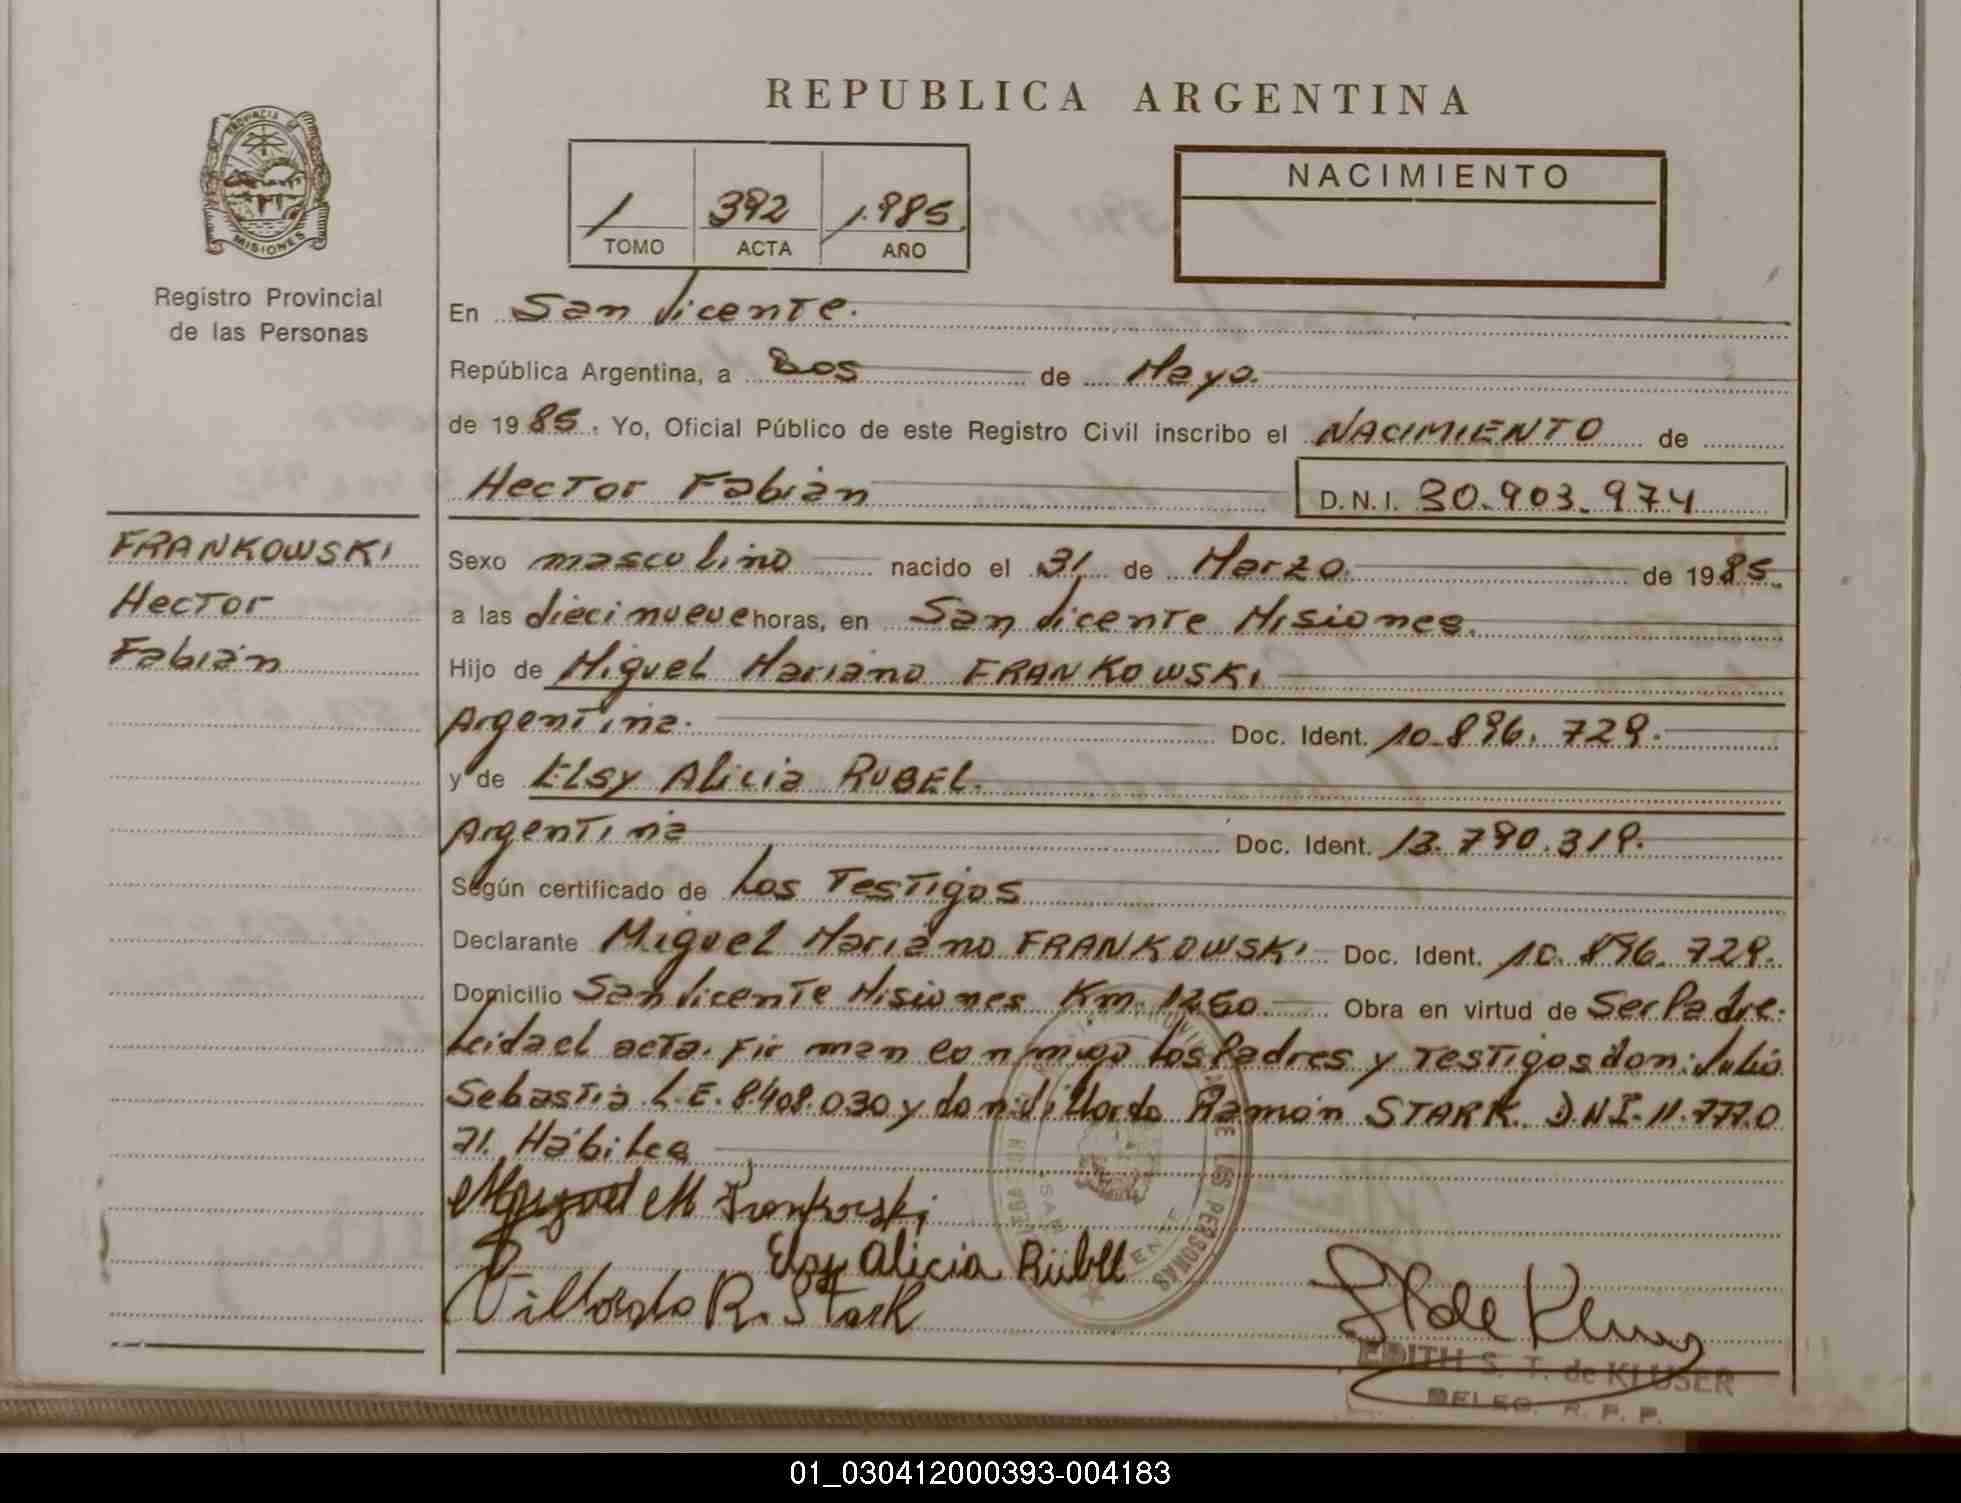 REPUBLICA ARGENTINA
PROVINCIA DE
MISIONES
Registro Provincial
de las Personas
1 392 1.985
TOMO ACTA AÑO
NACIMIENTO
En San Vicente.
República Argentina, a Dos de Mayo.
de 1985. Yo, Oficial Público de este Registro Civil inscribo el NACIMIENTO de
Hector Fabián D.N.I. 30.903.974
FRANKOWSKI
Hector
Fabián
Sexo masculino nacido el 31 de Marzo. de 1985.
a las diecinueve horas, en San Vicente Misiones.
Hijo de Miguel Mariano FRANKOWSKI
Argentina. Doc. Ident. 10.896.729.
y de Elsy Alicia RUBEL.
Argentina Doc. Ident. 13.790.319.
Según certificado de Los Testigos
Declarante Miguel Mariano FRANKOWSKI Doc. Ident. 10.896.729.
Domicilio San Vicente Misiones Km. 1260. Obra en virtud de Ser Padre.
Leida el acta. Firman conmigo los Padres y Testigos don: Julio
Sebastia L.E. 8408.030 y don: Villordo Ramón STARK. D.N.I. 11.777.0
71. Hábiles
Miguel M Frankowski
Elsy Alicia Rübell
Villordo R. Stark
EDITH S. T. de KLUSER
DELEG. R. P. P.
01_030412000393-004183